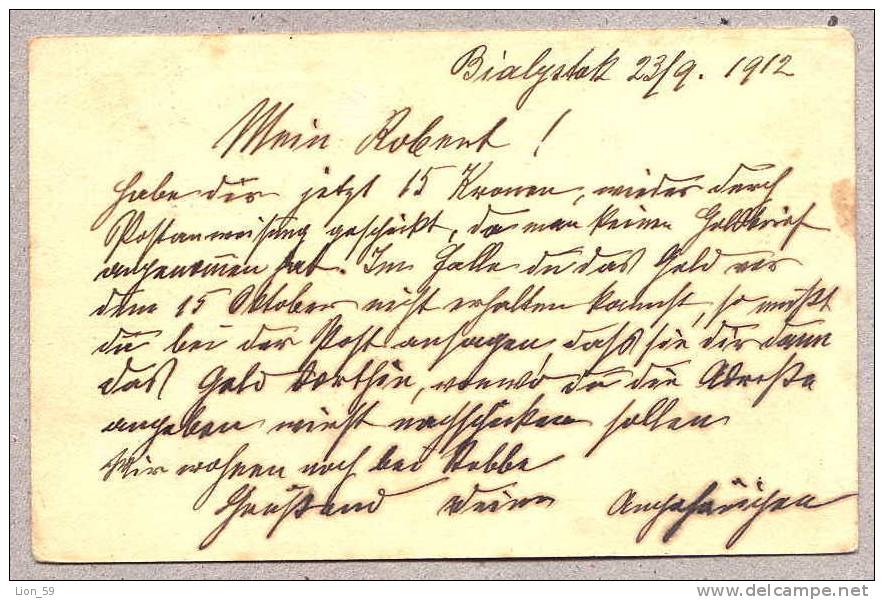 Bialystok 23/9. 1912
Mein Robert!
habe dir jetzt 15 Kronen, wieder durch
Postanweisung geschickt, da man keinen Geldbrief
angenommen hat. Im Falle du das Geld vor
dem 15 Oktober nicht erhalten kannst, so mußt
du bei der Post ansagen, dass sie dir dann
das Geld dorthin, du die Adreße
angeben wirst nachschicken sollen
Wir wohnen noch bei
Grüßend Deine
Lion_59
delcampe.net